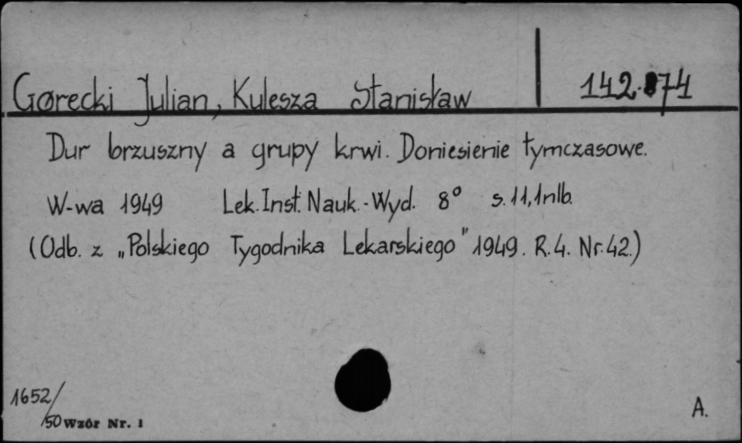 Gorecki Julian, Kulesza Stanisław 142.874
Dur brzuszny a grupy krwi. Doniesienie tymczasowe.
W-wa 1949 Lek. Inst. Nauk.-Wyd. 8° s. 11, 1nlb.
(Odb. z „Polskiego Tygodnika Lekarskiego" 1949. R. 4. Nr. 42.)
1652/
50 Wzór Nr. 1
A.